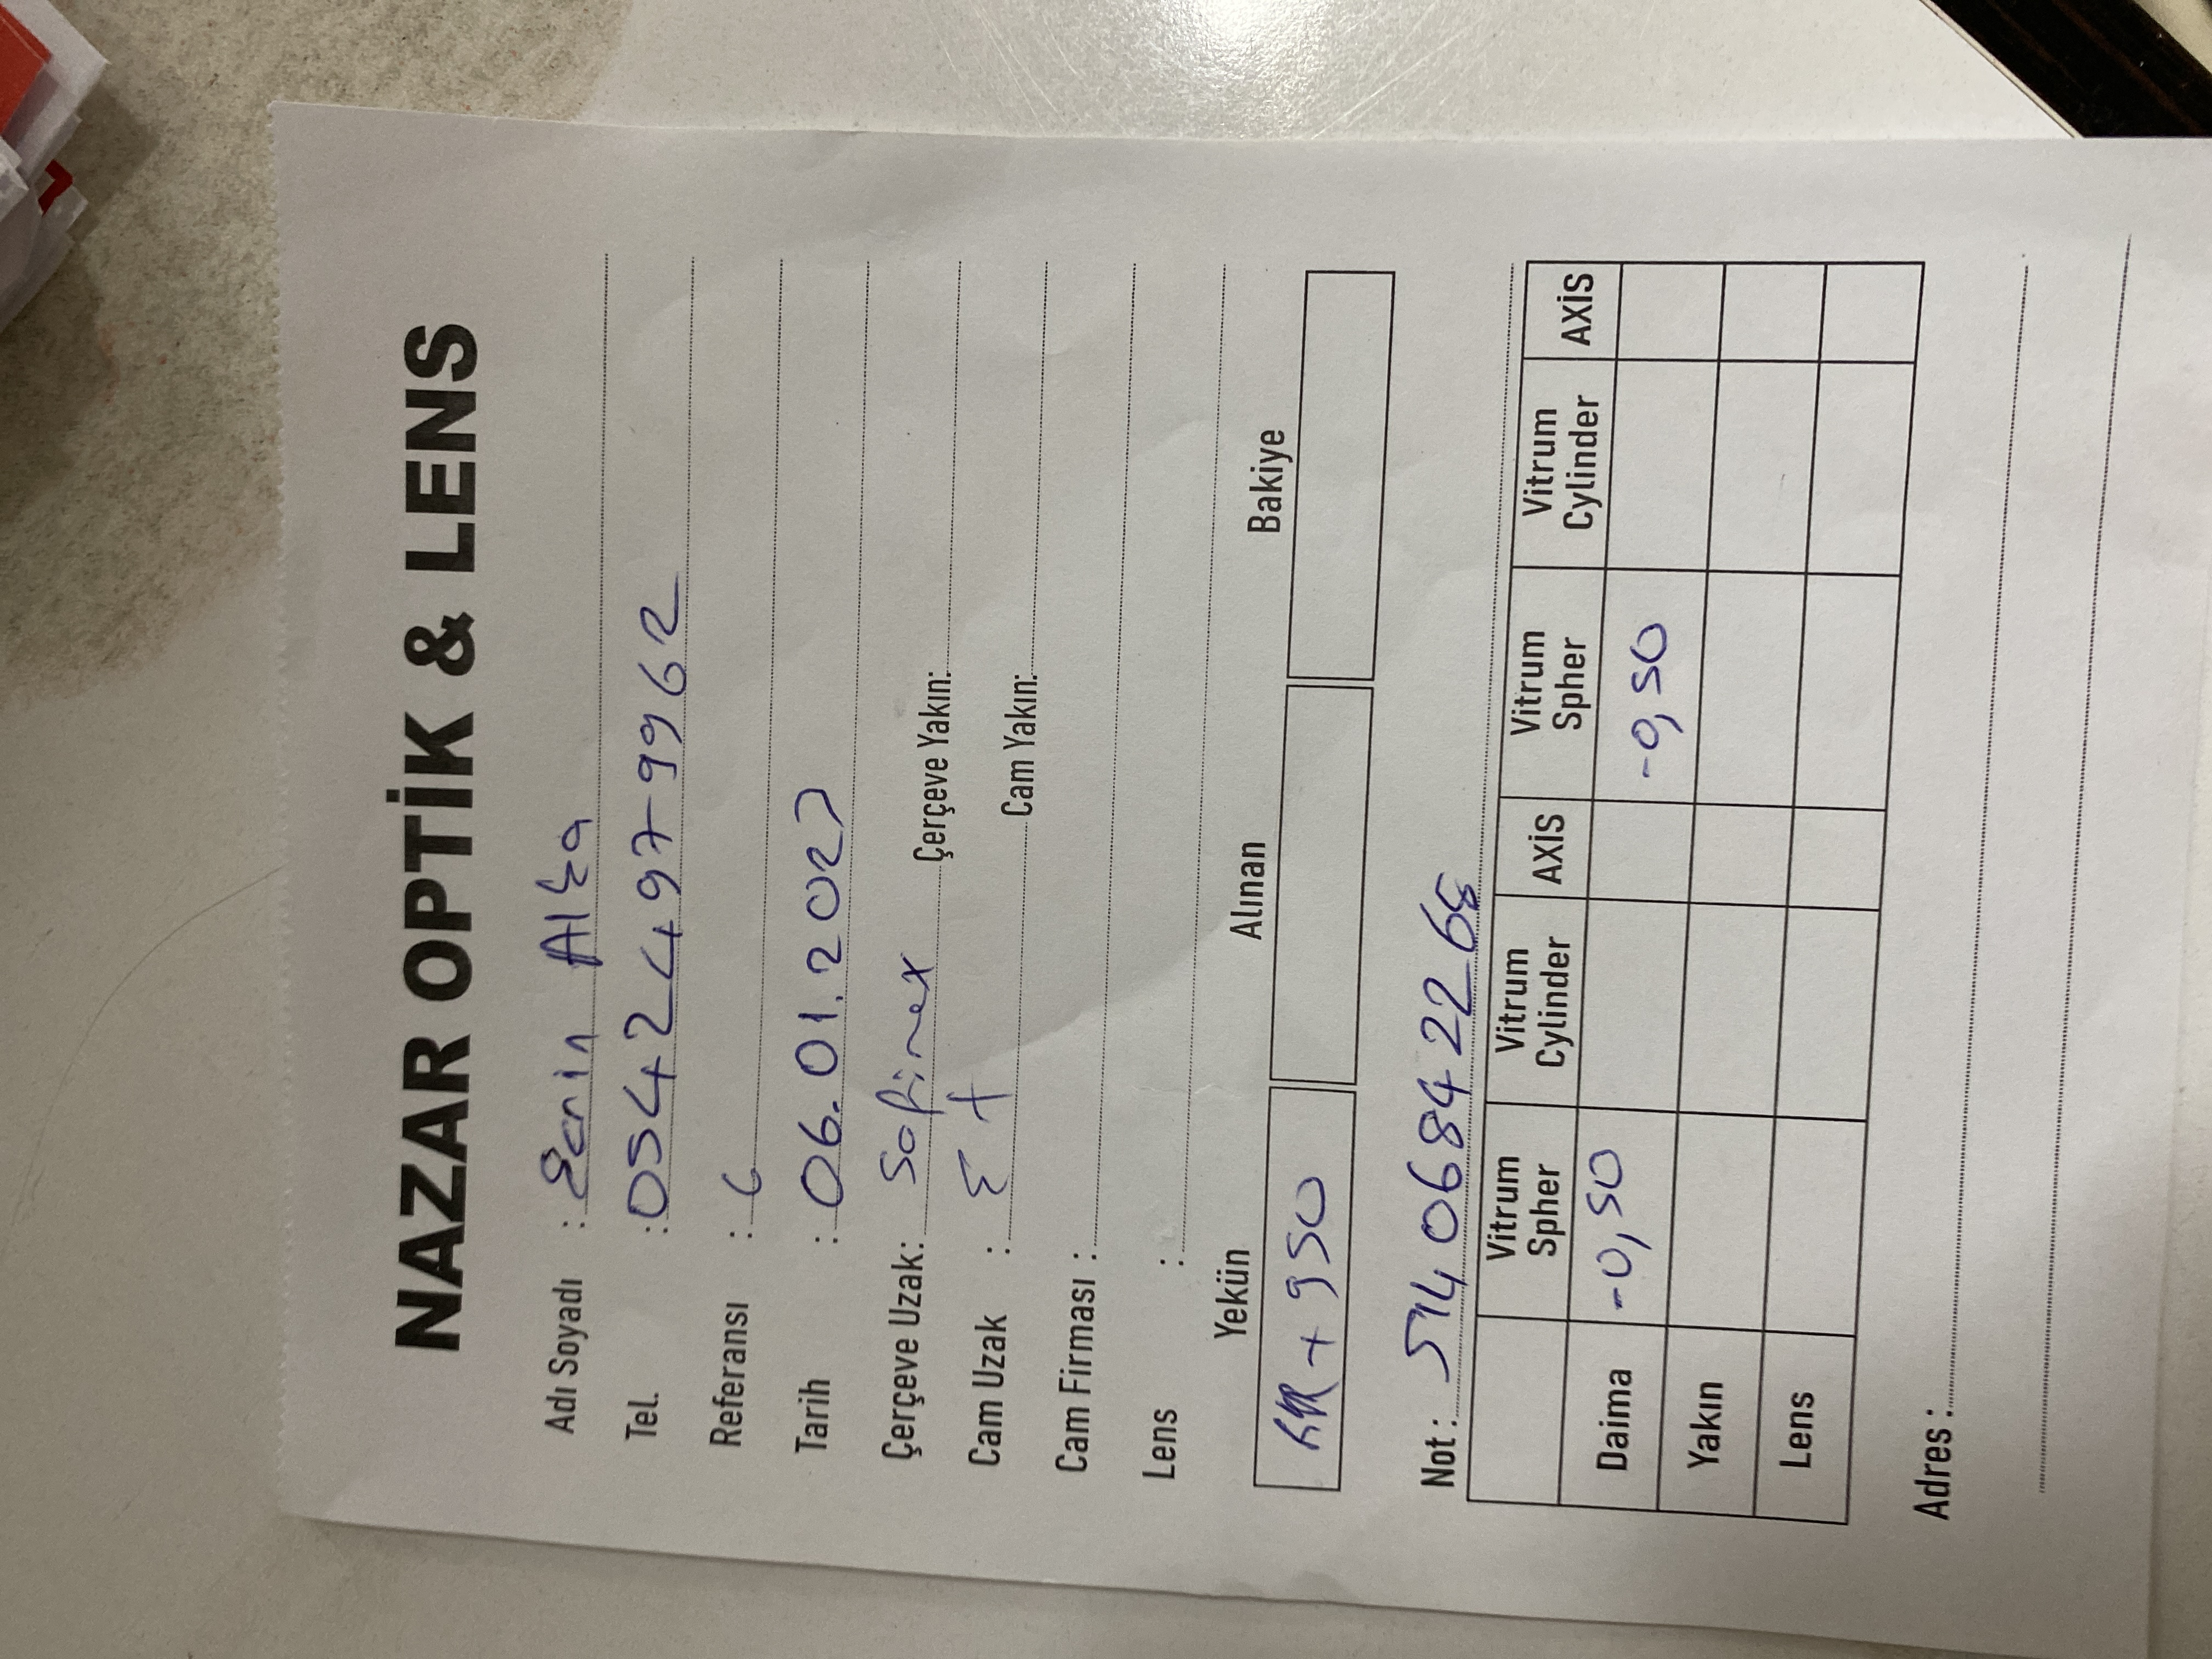 NAZAR OPTİK & LENS
Adı Soyadı :
Tel. : 0542 497 9962
Referansı : 6
Tarih : 06.01.2023
Çerçeve Uzak: Sofinex Çerçeve Yakın:
Cam Uzak : Cam Yakın:
Cam Firması :
Lens :
Yekün Alınan Bakiye
+ 950
Not : 514 068422 68
Vitrum Spher Vitrum Cylinder AXİS Vitrum Spher Vitrum Cylinder AXİS
Daima -0,50 -0,50
Yakın
Lens
Adres :